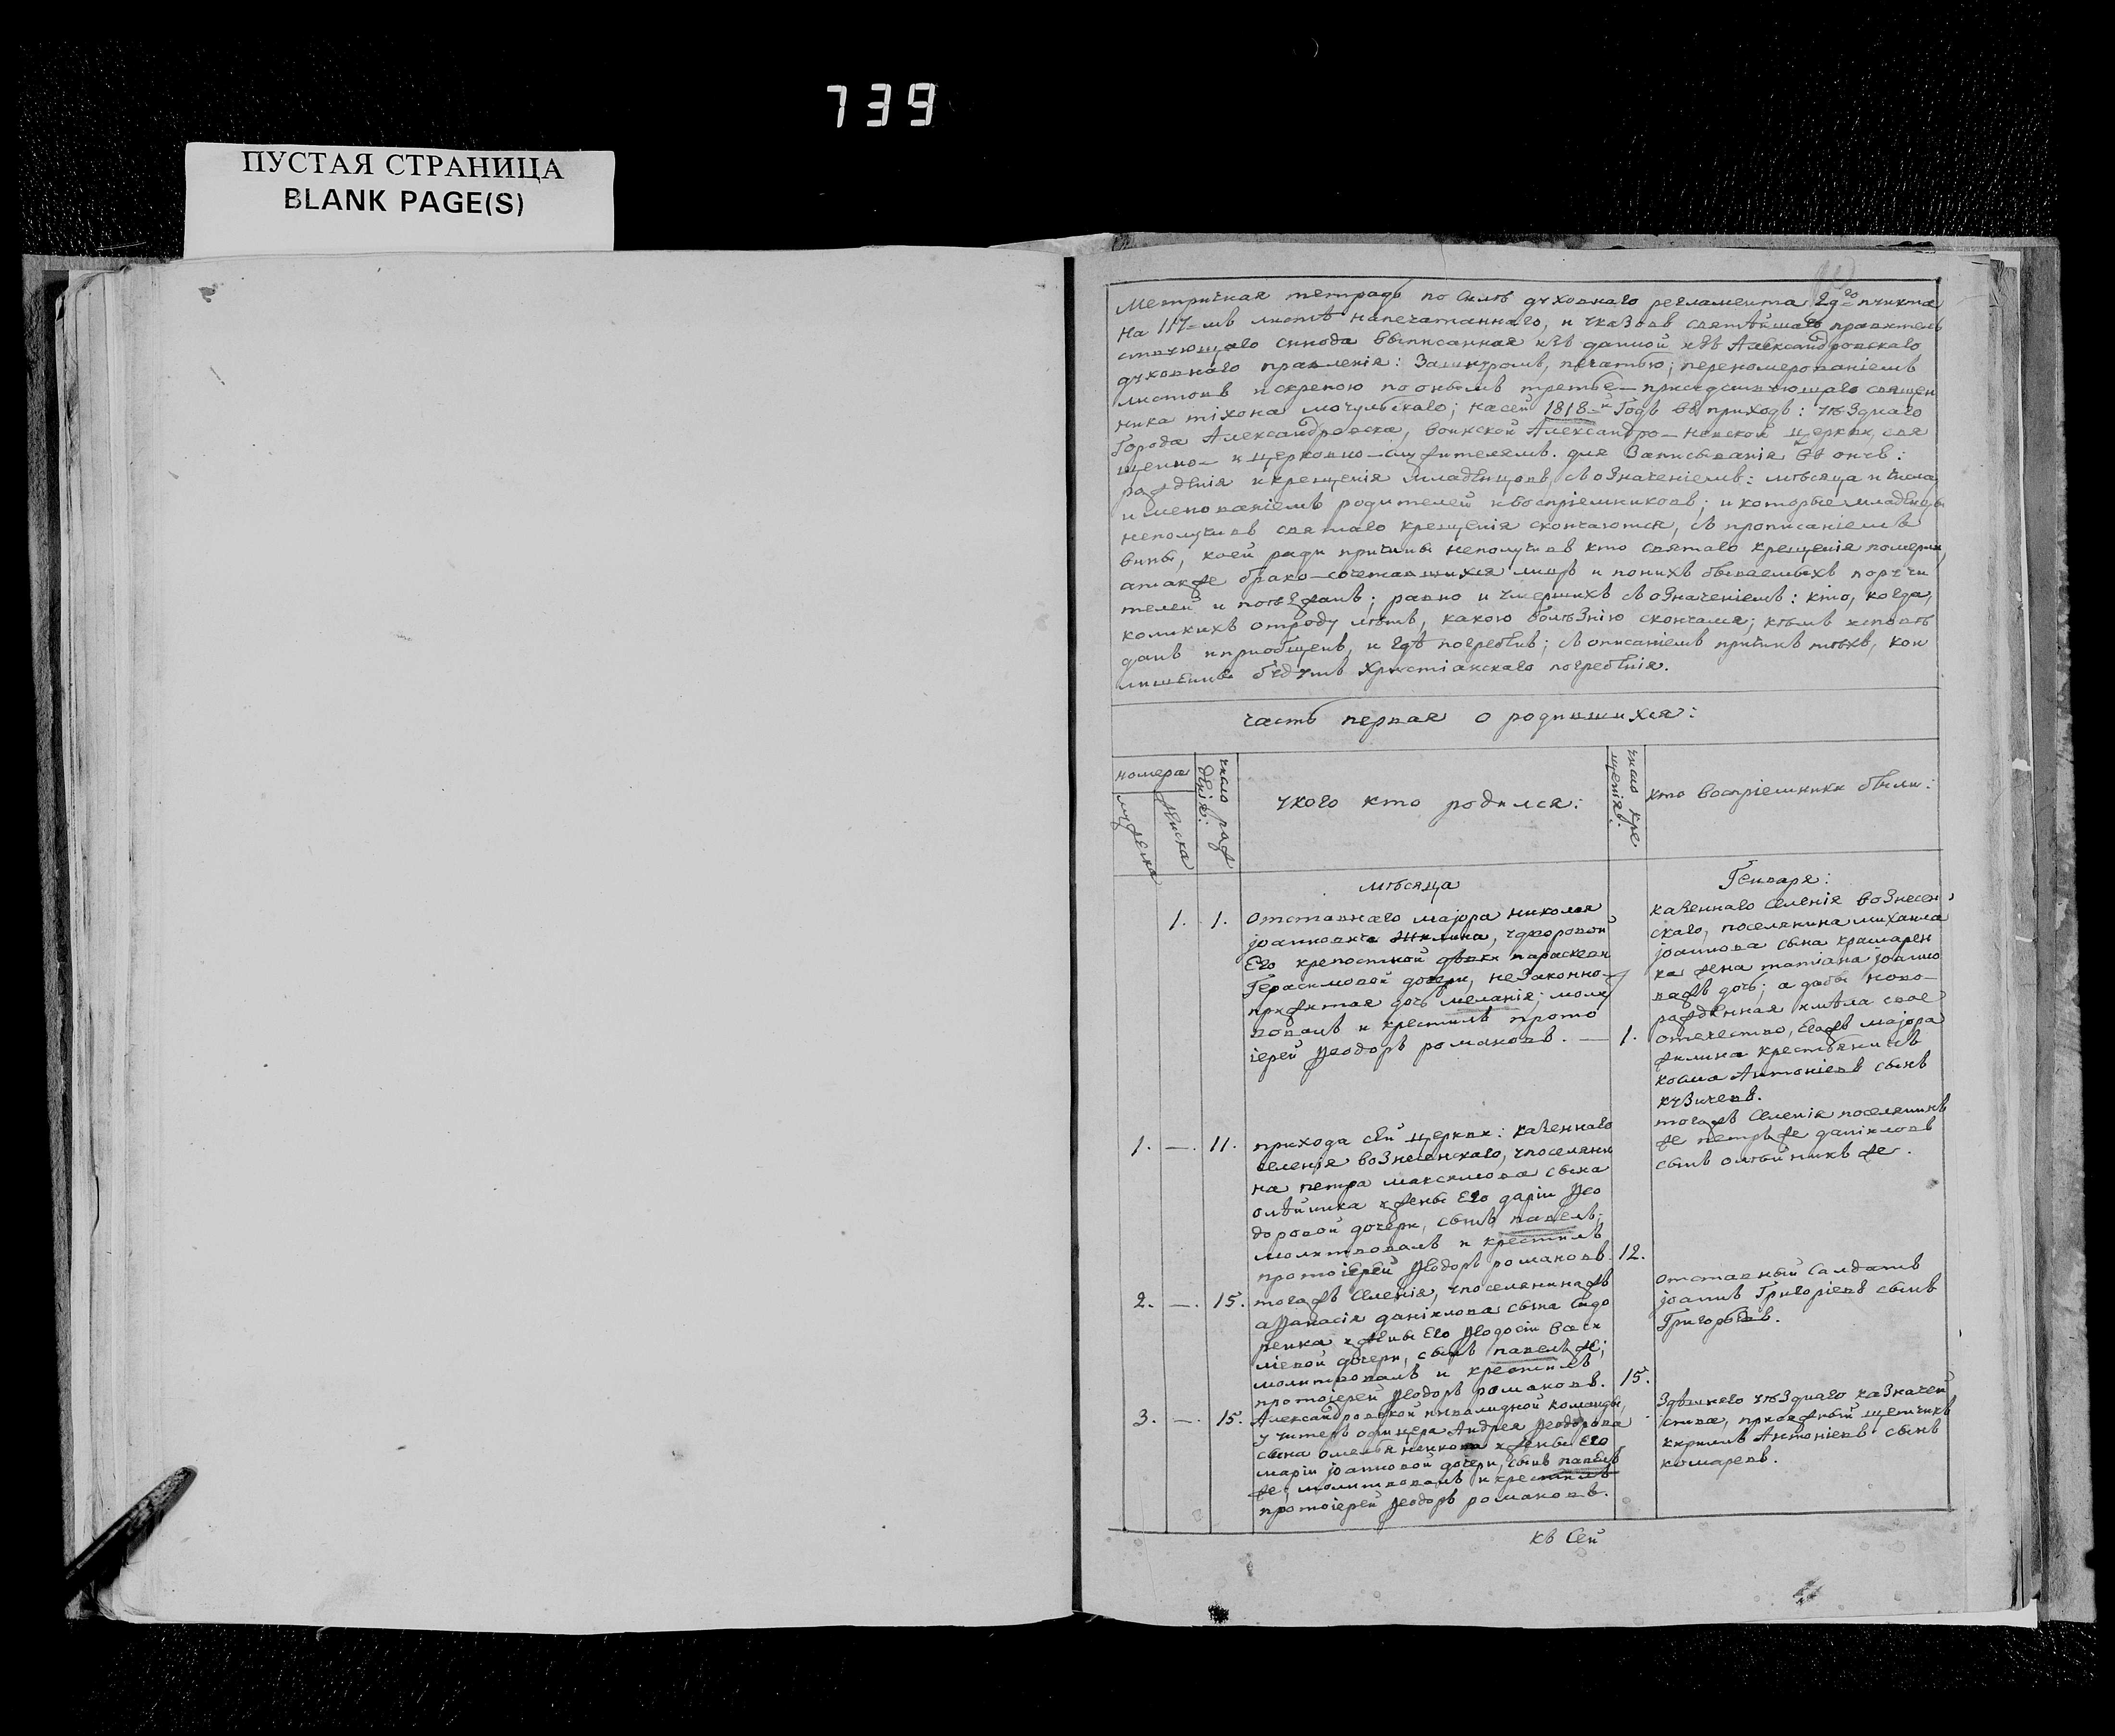 739
ПУСТАЯ СТРАНИЦА
BLANK PAGE(S)
Метричная тетрадь по силѣ духовнаго регламента 29го пункта
на 117=мъ листѣ напечатаннаго, и указовъ святѣйшаго правитель
ствующаго синода выписанная изъ данной изъ Александровскаго
духовнаго правленія: За шнуромъ, печатью, переномерованіемъ
листовъ и скрепою по онымъ третье-присудствующаго священ
ника тихона мочульскаго; на сей 1818=й Годъ въ приходъ: уѣзднаго
Города Александровска, воинской Александро-невской церкви, свя
щенно- и церковно-служителямъ. для Записыванія въ онухъ:
рожденія и крещенія младенцовъ, съ означеніемъ: мѣсяца и числа,
именованіемъ родителей и воспріемниковъ; и которые младенцы
неполучивъ святаго крещенія скончаются, съ прописаніемъ
вины, коей ради причины неполучивъ кто святаго крещенія померли,
атакже брако-сочетавшихся лицъ и понихъ бываемыхъ поручи
телей и поѣзжанъ; равно и умершихъ съ означеніемъ: кто, когда,
коликихъ отроду лѣтъ, какою болѣзнію скончался; кѣмъ исповѣ
данъ и приобщенъ, и гдѣ погребенъ; съ описаніемъ причинъ тѣхъ, кои
лишенны будутъ Христіанскаго погребенія.
часть первая о родившихся:
номера
мужеска
женска
число раж
денія:
укого кто родился:
число кре
щенія:
кто воспріемники были:
мѣсяца
Генваря:
1. 1. Отставнаго маіора николая
іоанновича Жилина, удворовой
Его крепостной дѣвки параскеви
Герасимовой дочери, неЗаконно-
прижитая дочь меланія; молит
вовалъ и крестилъ прото
іерей Ѳеодоръ романовъ. — 1.
каЗеннаго селенія воЗнесен
скаго, поселянина михаила
іоаннова сына крамарен
ка жена татіана іоанно
важъ дочь; а дабы ново-
рожденная имѣла свое
отечество, Егожъ маіора
жилина крестьянинъ
косма Антоніевъ сынъ
куЗичевъ.
1. —. 11. прихода сей церкви: каЗеннаго
селенія воЗнесенскаго, употселяни
на петра максимова сына
олѣйника жены Его даріи Ѳео
доровой дочери, сынъ павелъ;
молитвовалъ и крестилъ
протоіерей Ѳеодоръ романовъ. 12.
тогожъ селенія поселянинъ
же петръ же даніиловъ
сынъ олѣйникъ же.
2. —. 15. тогожъ селенія, употселянинажъ
аѲанасія даніилова сына сидо
ренка жены Его Ѳеодосіи Васи
ліевой дочери, сынъ павелъ же;
молитвовалъ и крестилъ
протоіерей Ѳеодоръ романовъ. 15.
отставный салдатъ
іоаннъ Григоріевъ сынъ
Григорьевъ.
3. —. 15. Александровской инвалидной команды,
унтеръ офицера Андрея Ѳеодорова
сына омельяненкова жены Его
маріи іоанновой дочери, сынъ павелъ
же; молитвовалъ и крестилъ
протоіерей Ѳеодоръ романовъ.
Здѣшняго уѣзднаго каЗначей
ства, присяжный щетчикъ
кириллъ Антоніевъ сынъ
комаревъ.
къ сей